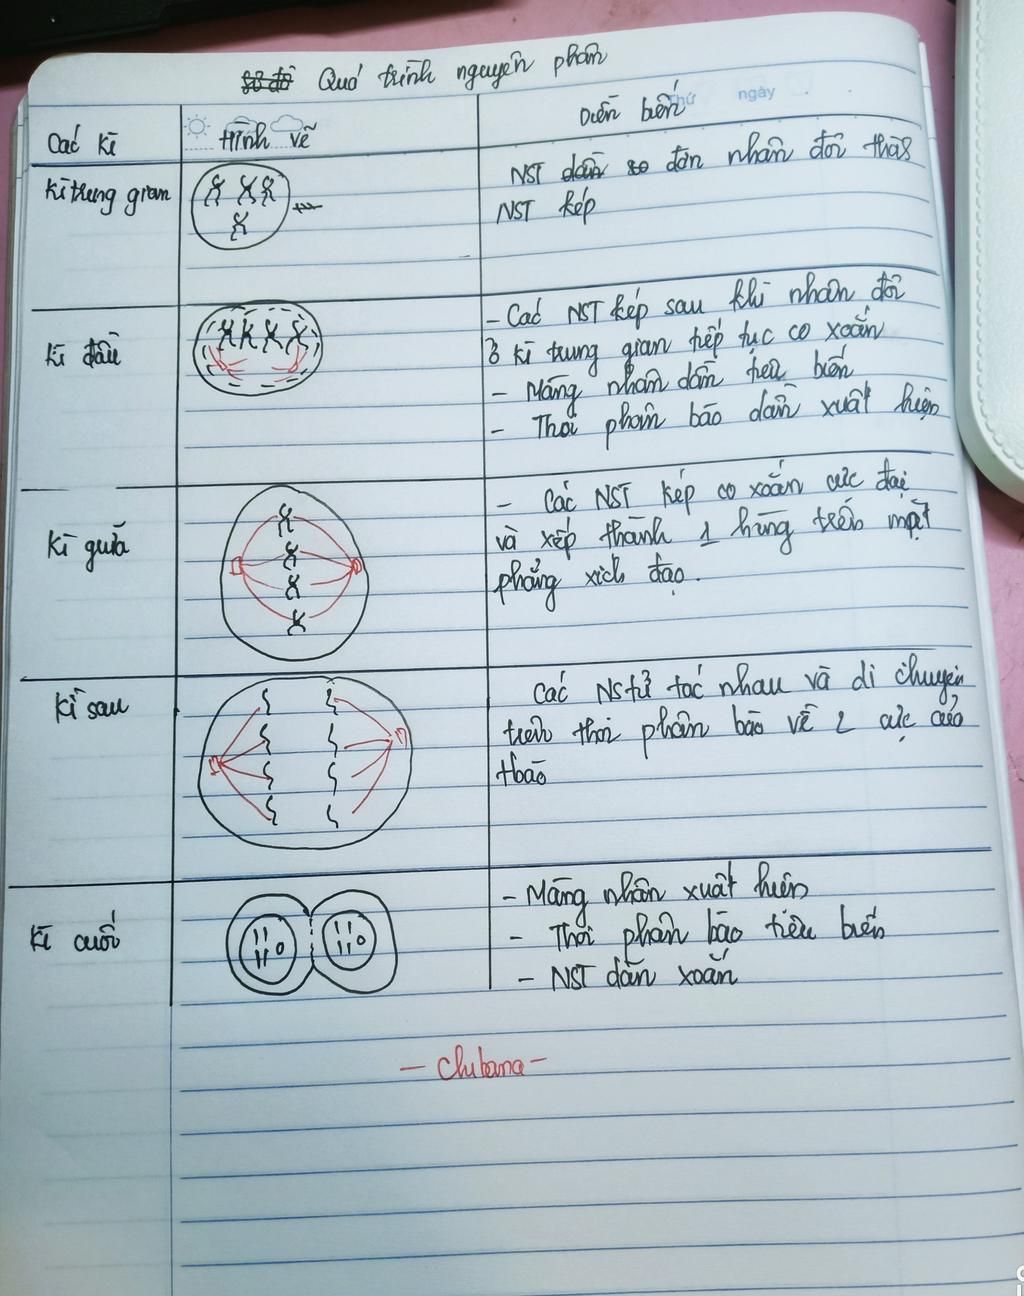 Quá trình nguyên phân
Thứ ngày
Các kì
Hình vẽ
Diễn biến
Kì trung gian
NST đơn nhân đôi thàh
NST kép
Kì đầu
- Các NST kép sau khi nhân đôi
ở kì trung gian tiếp tục co xoắn
- Màng nhân dần tiêu biến
- Thoi phân bào dần xuất hiện
Kì giữa
- Các NST kép co xoắn cực đại
và xếp thành 1 hàng trên mặt
phẳng xích đạo.
Kì sau
Các NS tử tác nhau và di chuyển
trên thoi phân bào về 2 cực của
tbào
Kì cuối
- Màng nhân xuất hiện
- Thoi phân bào tiêu biến
- NST dãn xoắn